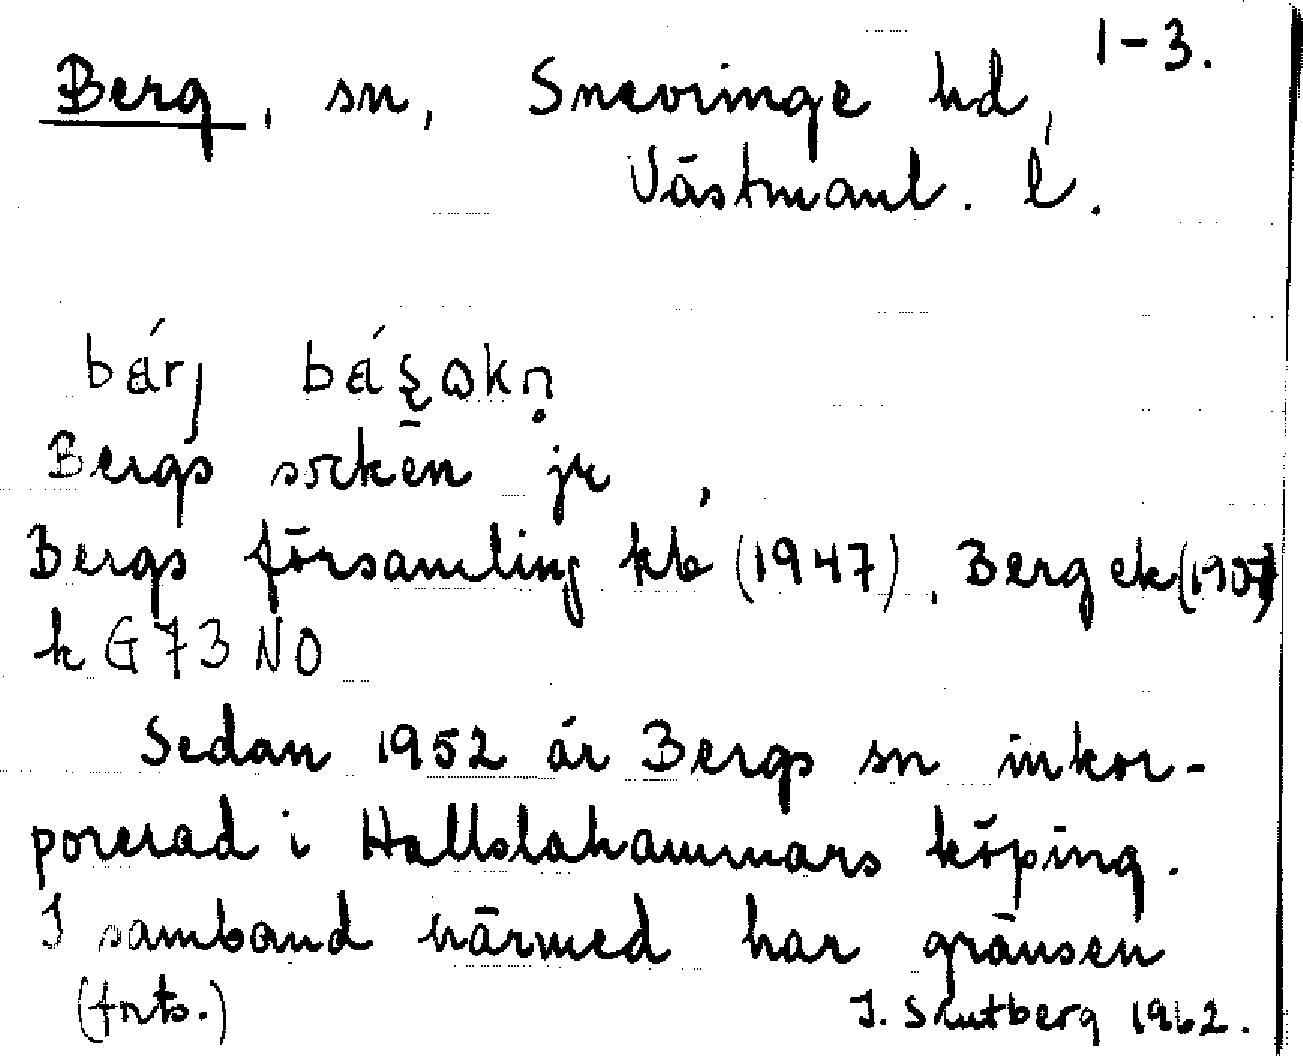 1-3.
Berg, sn, Snevringe hd,
Västmanl. l.
bárj básokn
Bergs socken jr
Bergs församling kb (1947), Berg ek (1907)
k G 73 NO
Sedan 1952 är Bergs sn inkor-
porerad i Hallstahammars köping.
I samband härmed har gränsen
(forts.) J. Slutberg 1962.